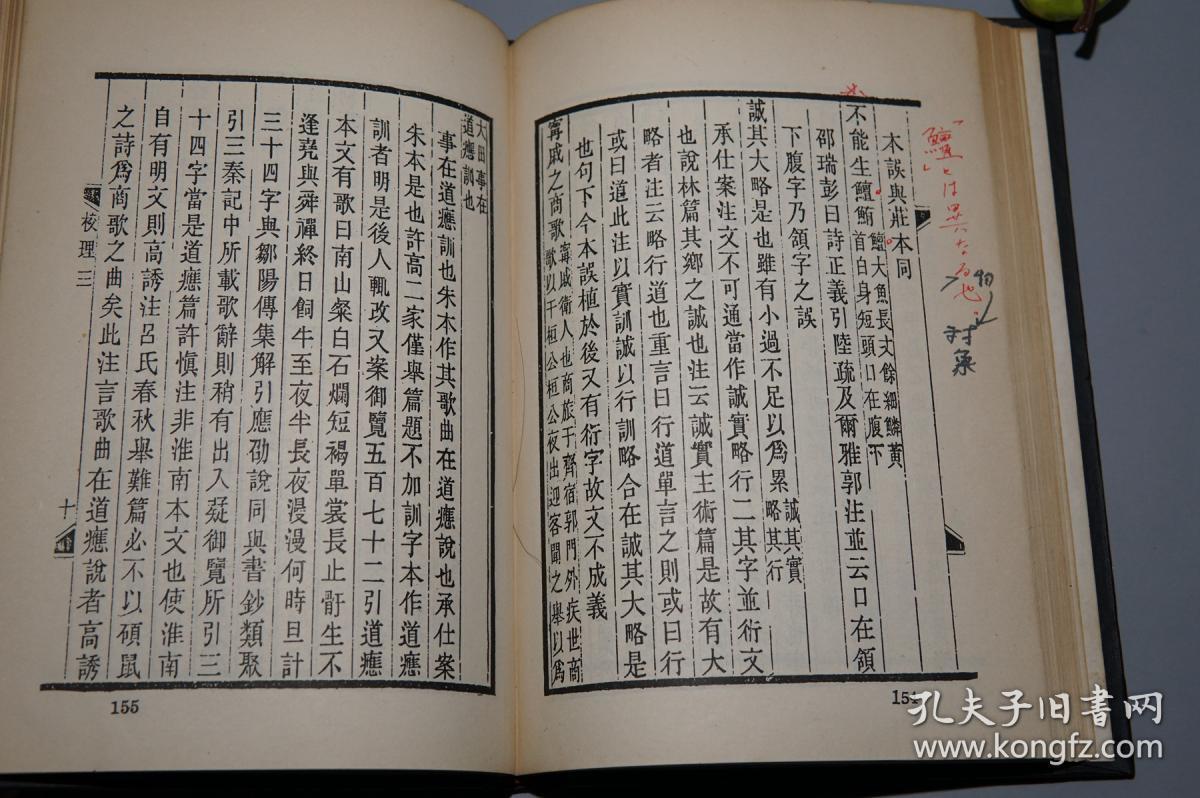 本誤與莊本同
不能生鱣鮪鱣大魚長丈餘細鱗黃
首白身短頭口在腹下
邵瑞彭曰詩正義引陸疏及爾雅郭注並云口在頷
下腹字乃頷字之誤
誠其大略是也雖有小過不足以爲累誠其實
略其行
承仕案注文不可通當作誠實略行二其字並衍文
也說林篇其鄉之誠也注云誠實主術篇是故有大
略者注云略行道也重言曰行道單言之則或曰行
或曰道此注以實訓誠以行訓略合在誠其大略是
也句下今本誤植於後又有衍字故文不成義
甯戚之商歌甯戚衛人也商旅于齊宿郭門外疾世商
歌以干桓公桓公夜出迎客聞之舉以爲
154
大田事在
道應訓也
事在道應訓也朱本作其歌曲在道應說也承仕案
朱本是也許高二家僅舉篇題不加訓字本作道應
訓者明是後人輒改又案御覽五百七十二引道應
本文有歌曰南山粲白石爛短褐單裳長止骭生不
逢堯與舜禪終日飼牛至夜半長夜漫漫何時旦計
三十四字與鄒陽傳集解引應劭說同與書鈔類聚
引三秦記中所載歌辭則稍有出入疑御覽所引三
十四字當是道應篇許慎注非淮南本文也使淮南
自有明文則高誘注呂氏春秋舉難篇必不以碩鼠
之詩爲商歌之曲矣此注言歌曲在道應說者高誘
校理三
十
155
「鱣」とは異なる也.
孔夫子旧书网
www.kongfz.com